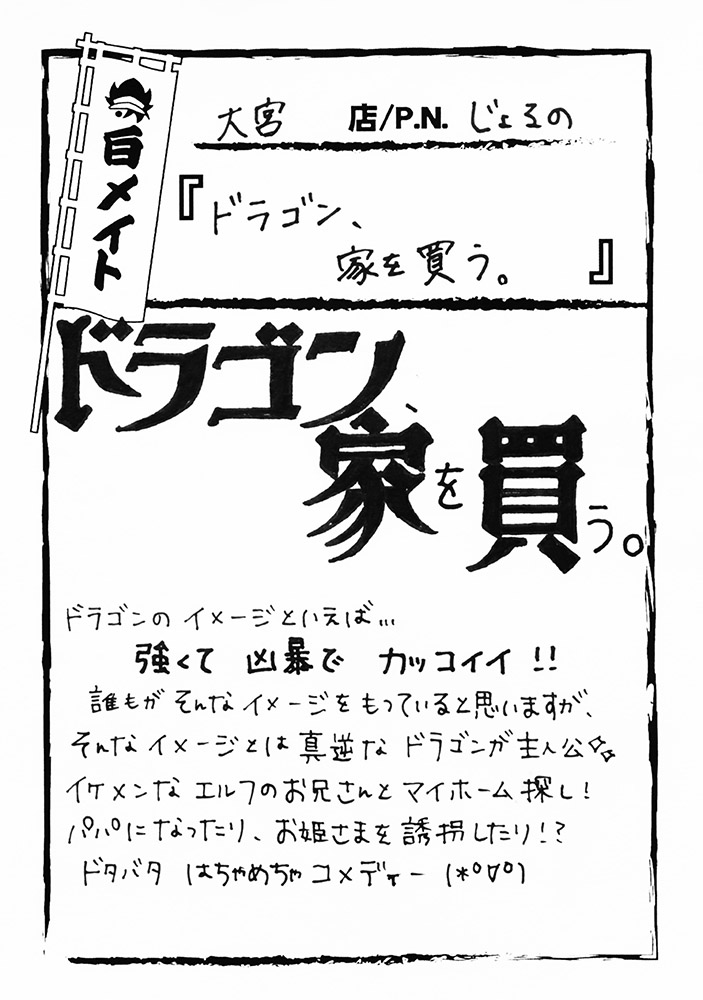 百メイト
大宮 店/P.N. じょるの
『ドラゴン、
家を買う。』
ドラゴン、
家を買う。
ドラゴンの イメージといえば…
強くて 凶暴で カッコイイ!!
誰もが そんなイメージを もっていると思いますが、
そんな イメージとは 真逆な ドラゴンが 主人公☆☆
イケメンな エルフのお兄さんと マイホーム 探し!
パパになったり、お姫さまを 誘拐したり!?
ドタバタ はちゃめちゃ コメディー (*°∇°)